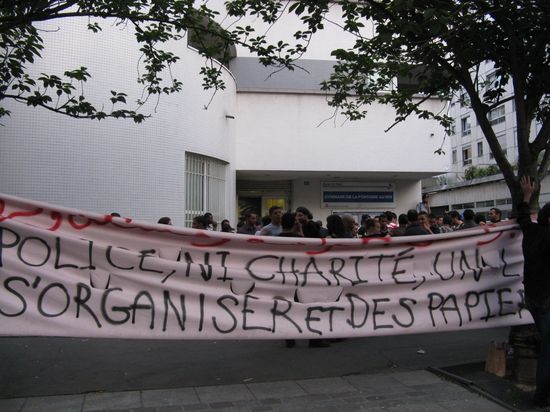 GYMNASE DE LA FONTAINE AU ROI
POLICE, NI CHARITÉ, UN L
S'ORGANISER ET DES PAPIE